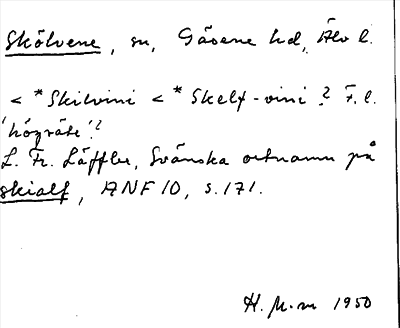 Skölvene, sn, Gäsene hd, Älv l.
< *Skilvini < *Skelf-vini? F.l.
'högräte'?
L. Fr. Läffler, Svänska ortnamn på
skialf, ANF 10, s. 171.
H. 1950